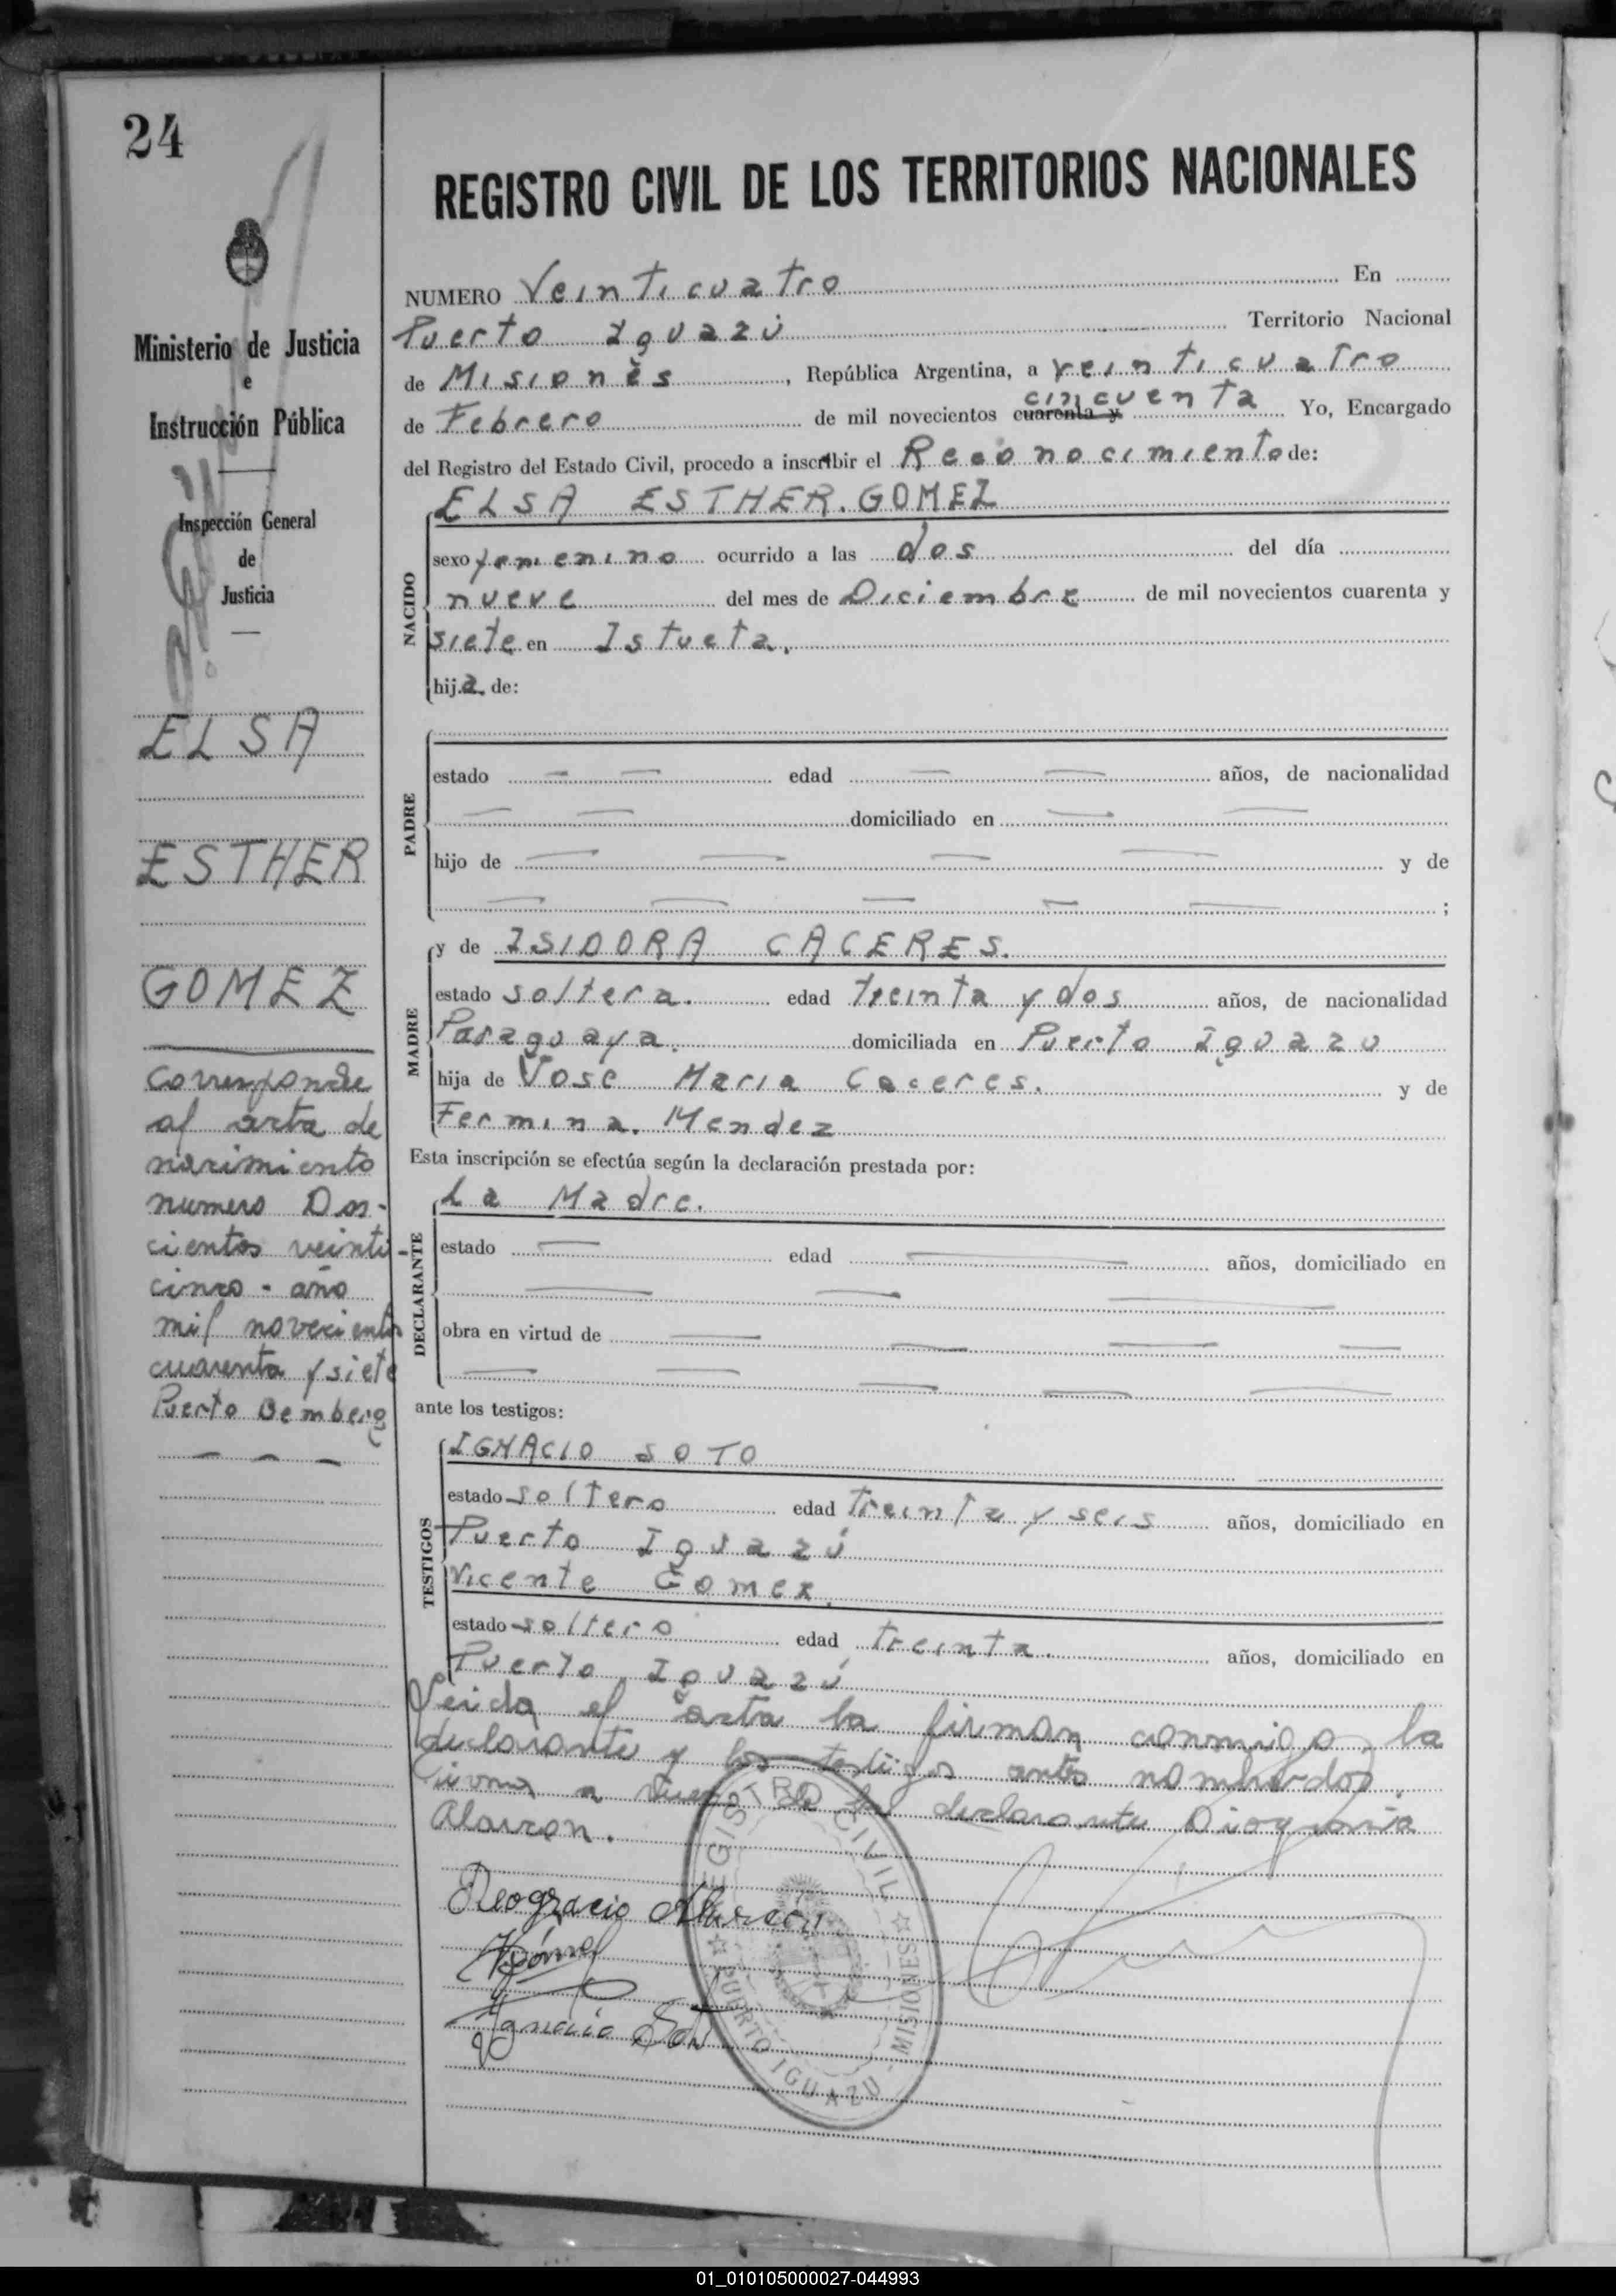 24
Ministerio de Justicia
e
Instrucción Pública
Inspección General
de
Justicia
ELSA
ESTHER
GOMEZ
Corresponde
al acta de
nacimiento
numero Dos-
cientos veinti-
cinco - año
mil novecientos
cuarenta y siete
Puerto Bemberg
REGISTRO CIVIL DE LOS TERRITORIOS NACIONALES
NUMERO Veinticuatro En
Puerto Iguazú Territorio Nacional
de Misiones, República Argentina, a veinticuatro
de Febrero de mil novecientos cuarenta y cincuenta Yo, Encargado
del Registro del Estado Civil, procedo a inscribir el Reconocimiento de:
NACIDO
ELSA ESTHER. GOMEZ
sexo femenino ocurrido a las dos del día
nueve del mes de Diciembre de mil novecientos cuarenta y
siete en Istueta.
hija de:
PADRE
estado edad años, de nacionalidad
domiciliado en
hijo de y de
;
MADRE
y de ISIDORA CACERES.
estado soltera. edad treinta y dos años, de nacionalidad
Paraguaya. domiciliada en Puerto Iguazu
hija de Jose Maria Caceres. y de
Fermina. Mendez
Esta inscripción se efectúa según la declaración prestada por:
DECLARANTE
La Madre.
estado edad años, domiciliado en
obra en virtud de
ante los testigos:
TESTIGOS
IGNACIO SOTO
estado soltero edad treinta y seis años, domiciliado en
Puerto Iguazú
Vicente Gomez.
estado soltero edad treinta. años, domiciliado en
Puerto Iguazú
Leida el acta la firman conmigo, la
declarante y los testigos antes nombrados.
Firma a ruego de la declarante Diogracia
Alarcon.
Deogracio Alarcon
VGómez
Ignacio Soto
REGISTRO CIVIL
PUERTO IGUAZU - MISIONES
01_010105000027-044993